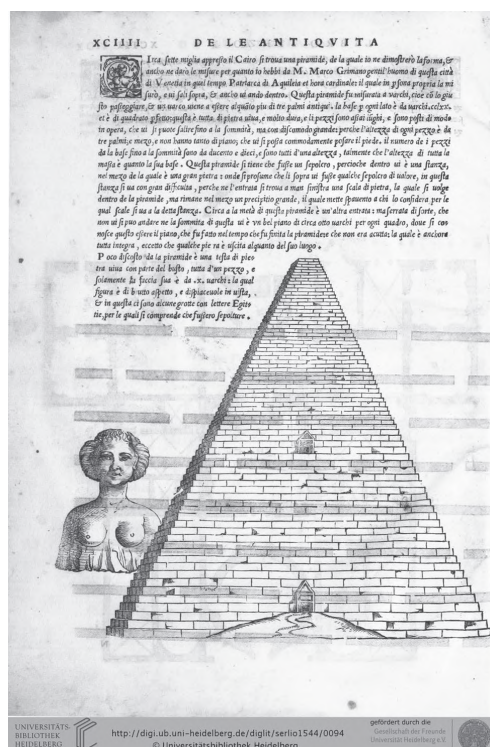 XCIIII DE LE ANTIQVITA
CIrca sette miglia appresso il Cairo si troua una piramide, de la quale io ne dimostrerò la forma, &
ancho ne daro le misure per quanto io hebbi da M. Marco Grimano gentil'huomo di questa città
di Venetia in quel tempo Patriarca di Aquileia et hora cardinale: il quale in psona propria la mi
surò, e ui salì sopra, & ancho ui andò dentro. Questa piramide fu misurata a uarchi, cioè cō lo giu
sto passeggiare, & un uarco uiene a essere alquāto piu di tre palmi antiqui. la base p ogni lato è da uarchi. cclxx.
et è di quadrato pfetto: questa è tutta di pietra uiua, e molto dura, e li pezzi sono assai lūghi, e sono posti di modo
in opera, che ui si puote salire fino a la sommità, ma con discomodo grande: perche l'altezza di ogni pezzo è da
tre palmi e mezo, e non hanno tanto di piano, che ui si possa commodamente posare il piede, il numero de i pezzi
da la base fino a la sommità sono da ducento e dieci, e sono tutti d'una altezza, talmente che l'altezza di tutta la
massa è quanto la sua base. Questa piramide si tiene che fusse un sepolcro, percioche dentro ui è una stanza,
nel mezo de la quale è una gran pietra: onde si presome che li sopra ui fusse qualche sepolcro di ualore, in questa
stanza si ua con gran difficuta, perche ne l'entrata si troua a man sinistra una scala di pietra, la quale si uolge
dentro de la piramide, ma rimane nel mezo un precipitio grande, il quale mette spauento a chi lo considera. per la
qual scale si ua a la detta stanza. Circa a la metà di questa piramide è un'altra entrata: ma serrata di forte, che
non ui si puo andare ne la sommita di questa ui è vn bel piano di circa otto uarchi per ogni quadro, doue si co
nosce questo essere il piano, che fu fatto nel tempo che fu finita la piramide: e che non era acutta: la quale è anchora
tutta integra, eccetto che qualche pietra è uscita alquanto del suo luogo.
Poco discosto da la piramide è una testa di pie
tra uiua con parte del busto, tutta d'un pezzo, e
solamente la faccia sua è da .x. uarchi: la qual
figura è di brutto aspetto, e dispiaceuole in uista,
& in questa ci sono alcune grotte con lettere Egit
tie, per le quali si comprende che fussero sepolture.
UNIVERSITÄTS-
BIBLIOTHEK
HEIDELBERG
http://digi.ub.uni-heidelberg.de/diglit/serlio1544/0094
© Universitätsbibliothek Heidelberg
gefördert durch die
Gesellschaft der Freunde
Universität Heidelberg e.V.